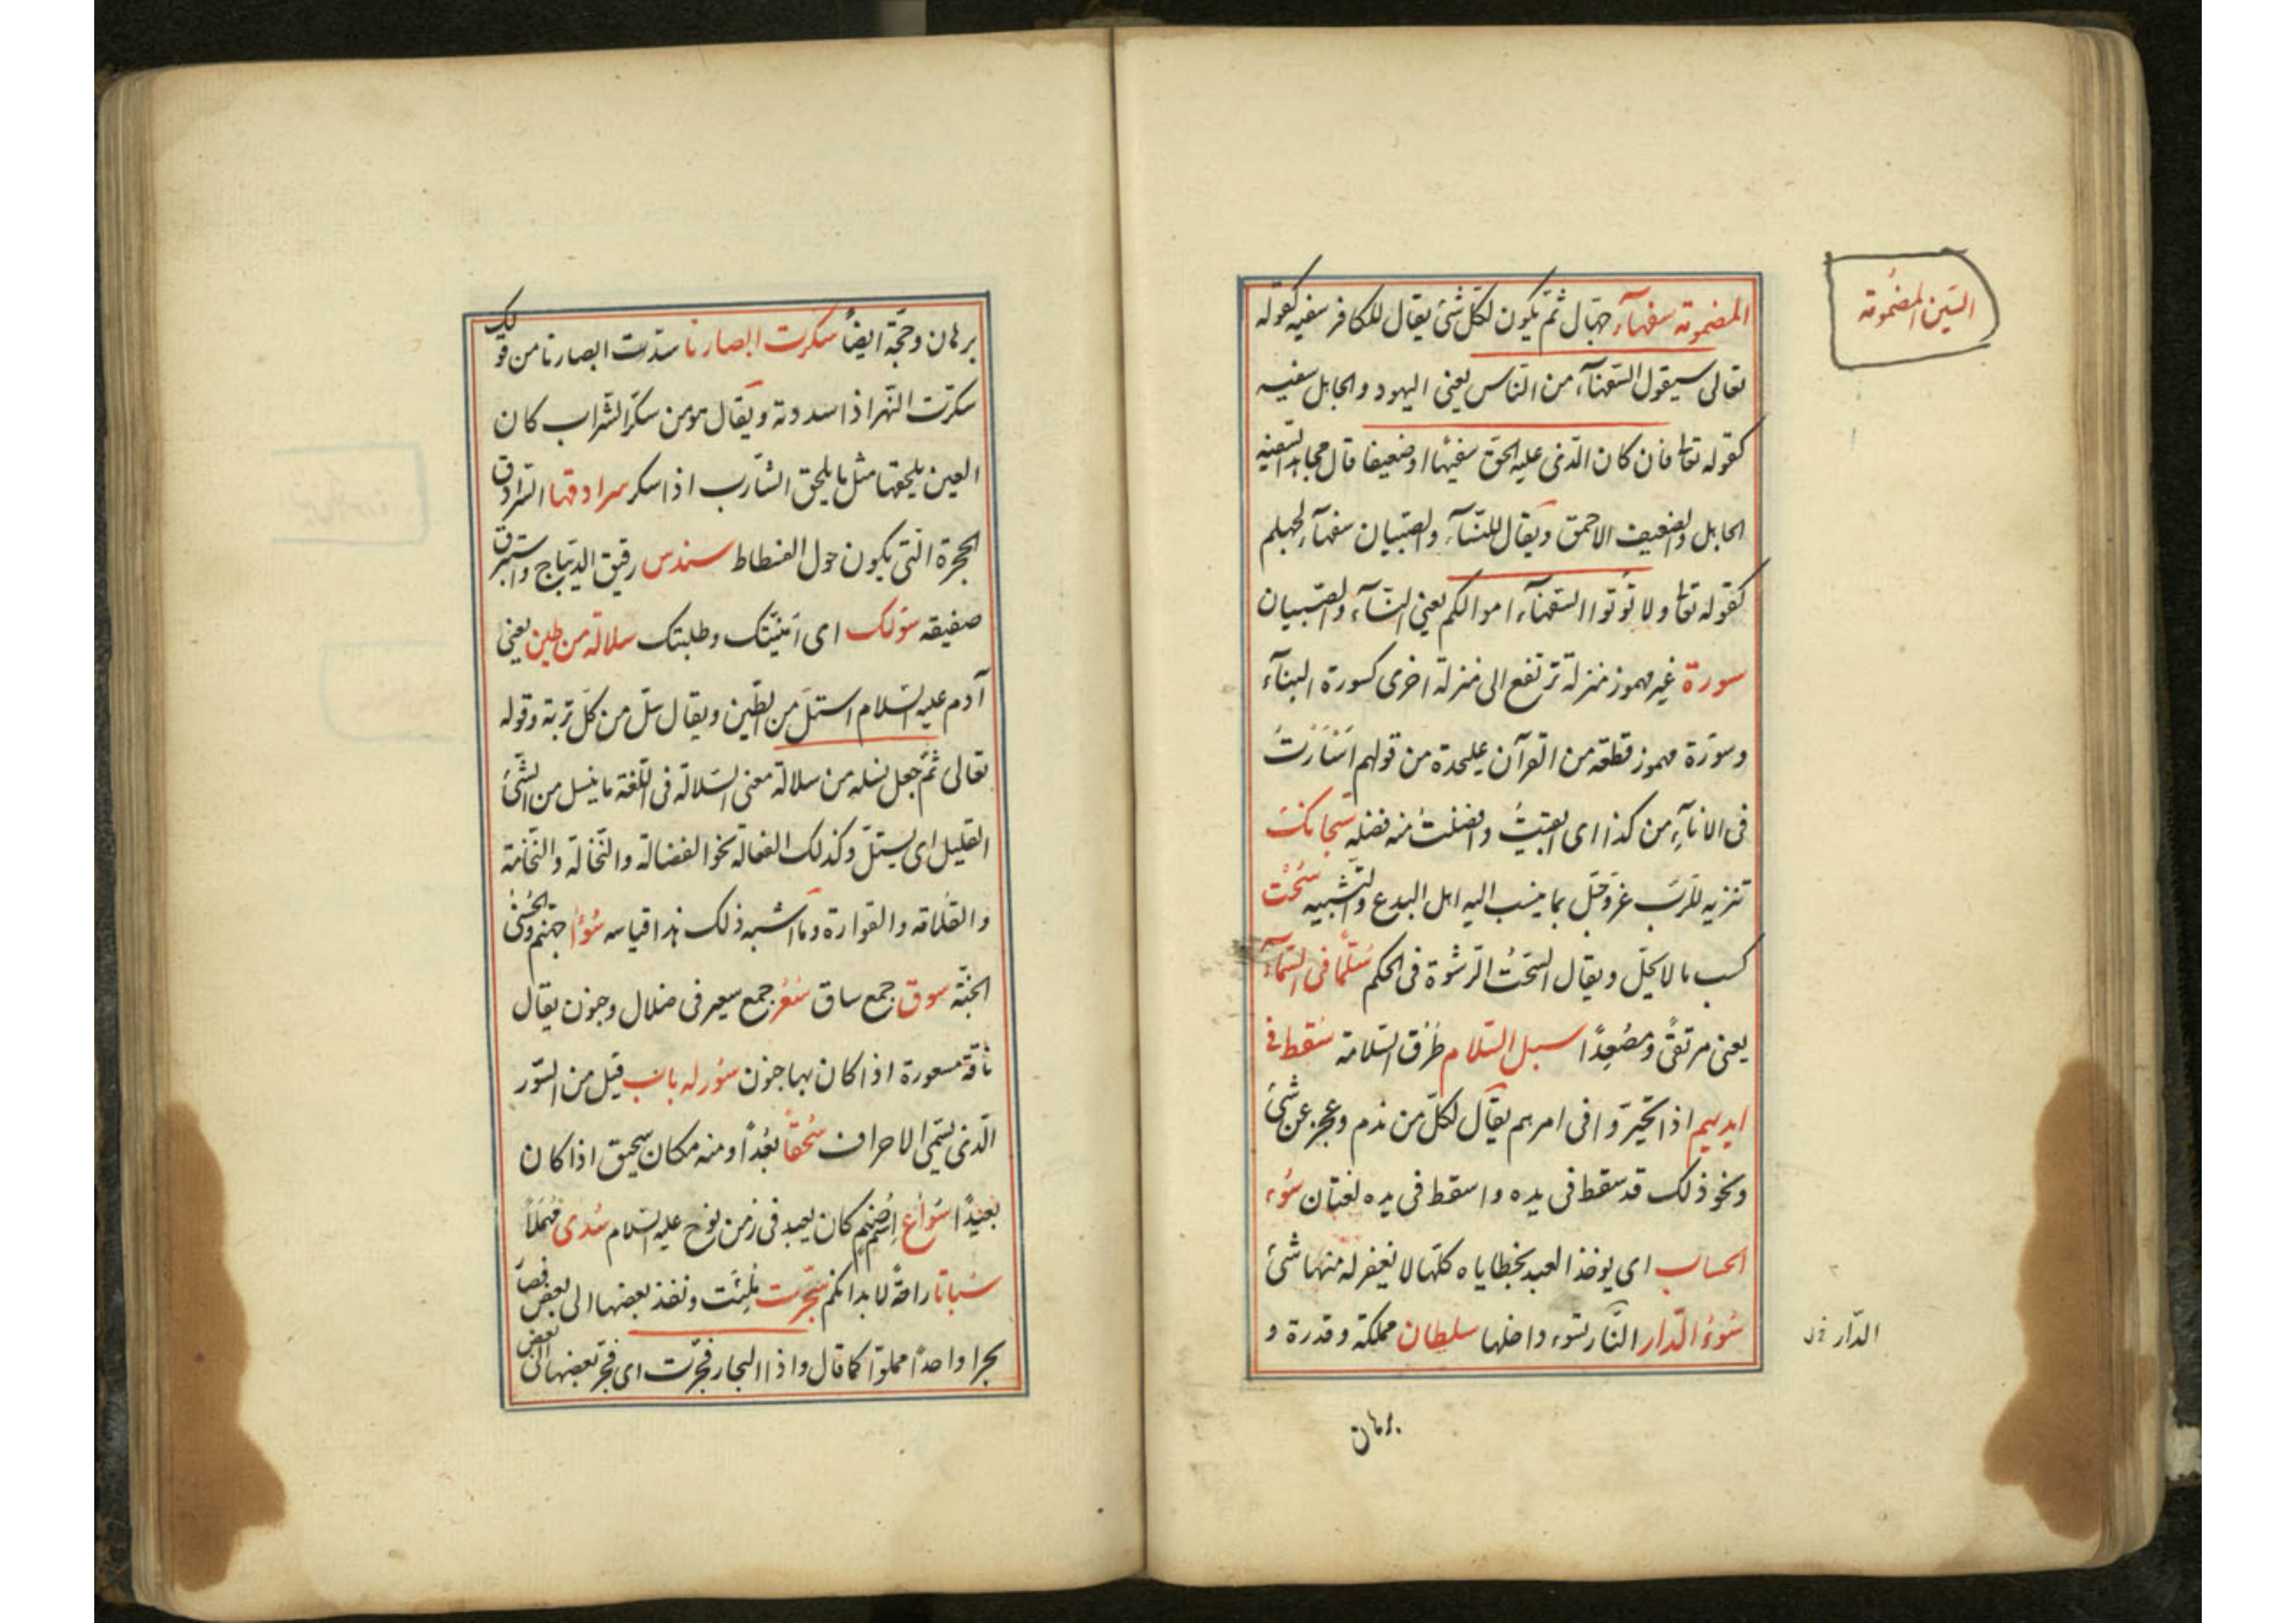 السّين المضمُومة
المضمومة سفهآء جهّال ثمّ يكون لكلّ شئ يقال للكافر سفيه كقوله
تعالى سيقول السّفهآء من النّاس يعنى اليهود والجاهل سفيه
كقوله تعا فان كان الّذى عليه الحق سفيها او ضعيفا قال مجاهد السّفيه
الجاهل والضعيف الاحمق ويقال للنّسآء والصّبيان سفهآء لجهلهم
كقوله تعا ولا تؤتوا السّفهآء اموالكم يعنى النّسآء والصّبيان
سورة غير مهموز منزلة ترتفع الى منزلة اخرى كسورة البنآء
وسورة مهموز قطعة من القرآن عليحدة من قولهم اسْأَرْتُ
فى الانآء من كذا اى ابقيتُ وافضلتُ منه فضلة سُبحانكَ
تنزيه للرّب عزّ وجلّ بما ينسب اليه اهل البدع والتّشبيه سُحْت
كسب ما لا يحلّ ويقال السّحتُ الرّشوة فى الحكم سُلّمًا فى السّمآء
يعنى مرتقىً ومصْعِدًا سبل السّلام طُرُق السّلامة سُقط فى
ايديهم اذا تحيّروا فى امرهم يقال لكلّ من ندم وعجز عن شئ
ونحو ذلك قد سقط فى يده واسقط فى يده لغتان سُوء
الحساب اى يوخذ العبد بخطاياه كلّها لا يغفر له منها شئ
سُوءُ الدّار النّار تسوء داخلها سلطان مملكة وقدرة و
الدّار
برهان
برهان وحجّة ايضاً سكرت ابصارنا سدّت ابصارنا من قولك
سكرت النّهر اذا سددته ويقال هو من سكر الشّراب كان
العين يلحقها مثل ما يلحق الشّارب اذا سكر سرادقها السّرادق
الحجرة الّتى يكون حول الفسطاط سندس رقيق الديباج واستبرق
صفيقه سؤلك اى امنيّتك وطلبتك سلالة من طين يعنى
آدم عليه السّلام استلّ من الطّين ويقال سلّ من كلّ تربة وقوله
تعالى ثمّ جعل نسله من سلالة معنى السّلالة فى اللّغة ما ينسل من الشّئ
القليل اى يستلّ وكذلك الفعالة نحو الفضالة والنّخالة والنّخامة
والقلامة والقوارة وما اشبه ذلك هذا قياسه سُوأى جهنّم والحُسْنى
الجنّة سوق جمع ساق سُعُر جمع سعير فى ضلال وجنون يقال
ناقة مسعورة اذا كان بها جنون سُور له باب قيل من السّور
الّذى يسمّى الاعراف سُحقاً بُعْداً ومنه مكان سحيق اذا كان
بعيدًا سُواع اسم صنم كان يعبد فى زمن نوح عليه السّلام سُدى مُهملاً
سُباتا راحةً لابدانكم سُجّرت مُلِئَت ونفذ بعضها الى بعض فصار
بحرا واحدًا مملوّا كما قال واذا البحار فجّرت اى فجّر بعضها الى بعض